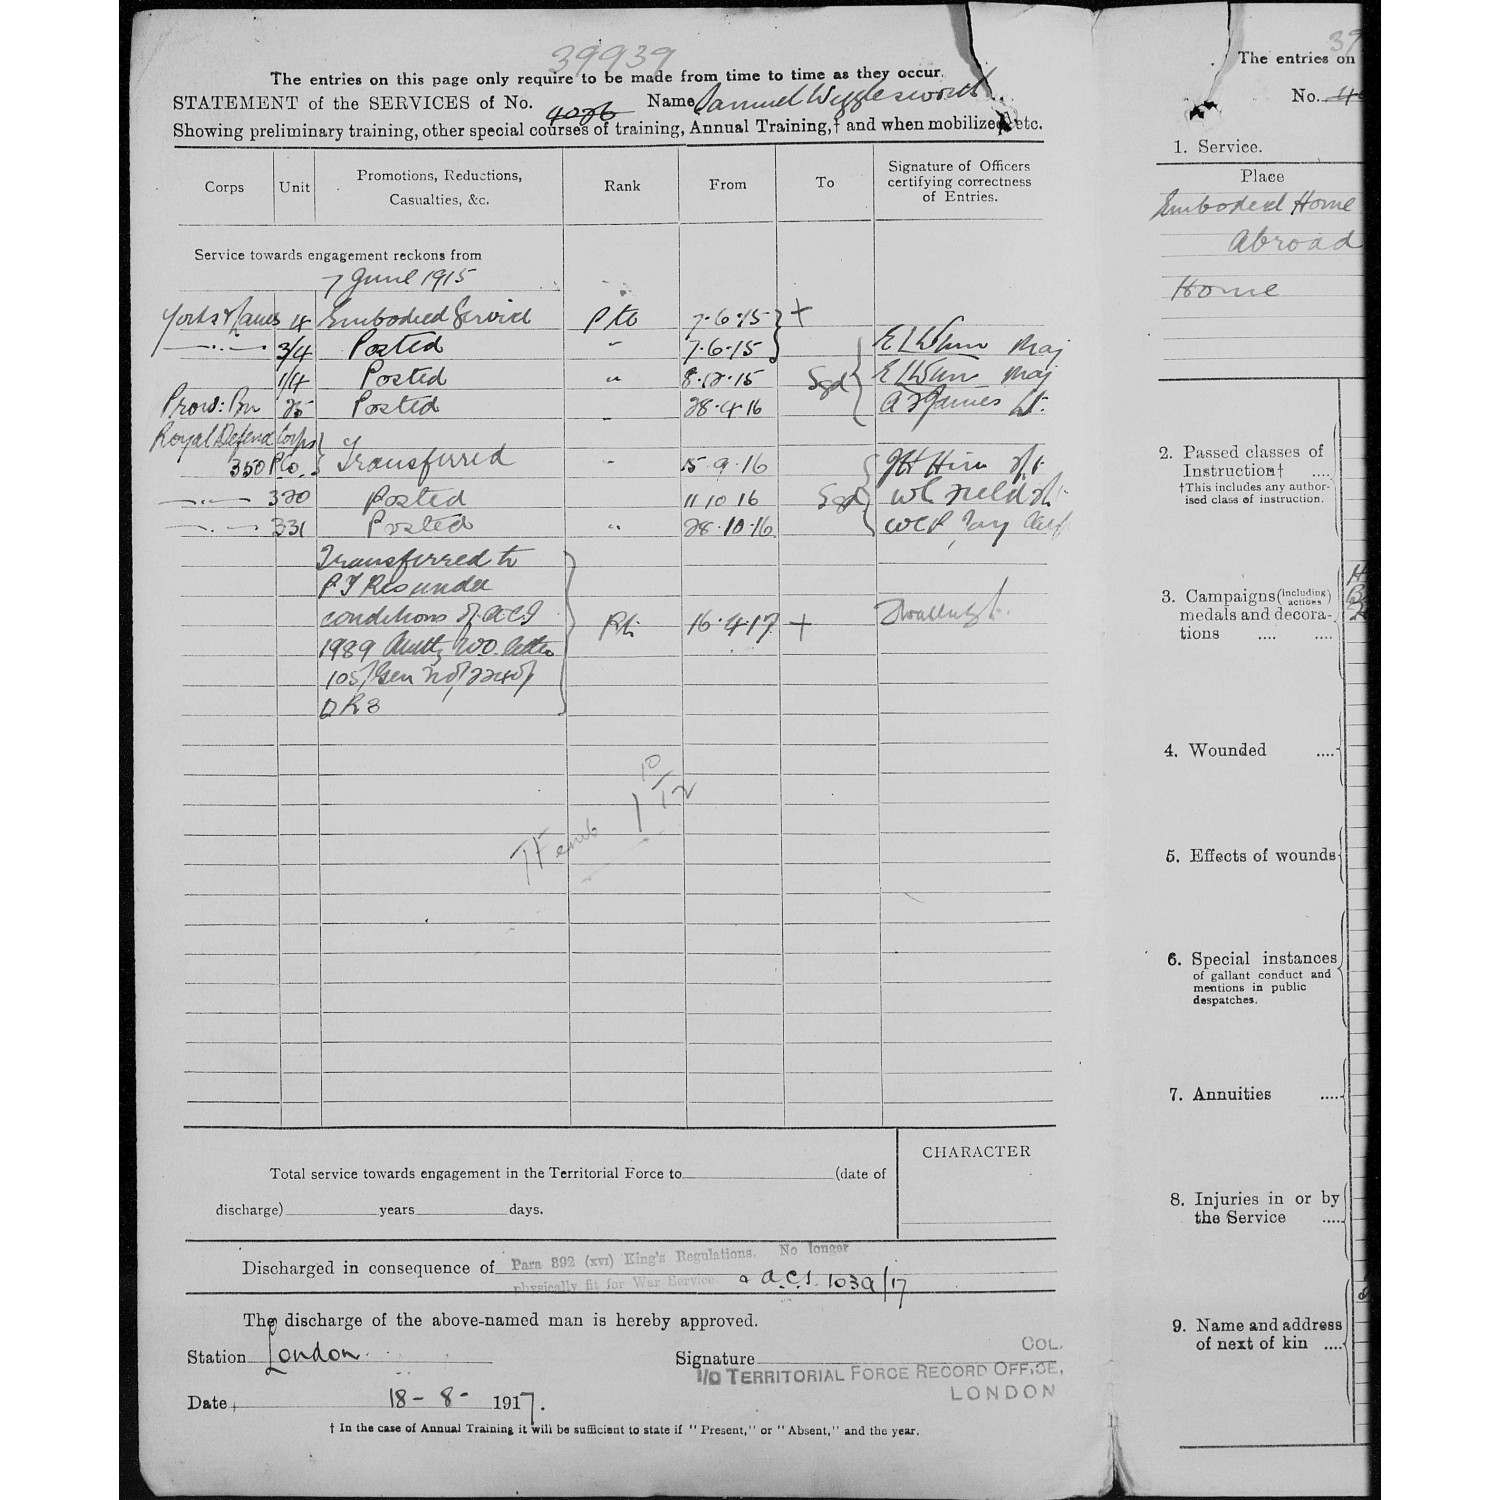 39939
The entries on this page only require to be made from time to time as they occur.
STATEMENT of the SERVICES of No. Name Samuel Wigglesworth
Showing preliminary training, other special courses of training, Annual Training,† and when mobilized, etc.
Corps Unit Promotions, Reductions, Casualties, &c. Rank From To Signature of Officers certifying correctness of Entries.
Service towards engagement reckons from
7 June 1915
Yorks & Lancs 4 Embodied Service Pte 7.6.15 +
3/4 Posted " 7.6.15 Maj
1/4 Posted " 8.12.15 Sgd Maj
Prov: Bn 25 Posted 28.4.16 Lt.
Royal Defence Corps
350 P Co. Transferred " 15.9.16
320 Posted 11 10 16 Sgd
331 Posted " 28.10.16
Transferred to
P T Res under
conditions of ACI
1989 Authy WO. letter
105/Gen No/2240/
DR3
16.4.17 +
10
1 12
TF emb
Total service towards engagement in the Territorial Force to (date of
discharge) years days.
CHARACTER
Discharged in consequence of Para 392 (xvi) King's Regulations. No longer
physically fit for War Service. & A.C.I. 1039/17
The discharge of the above-named man is hereby approved.
Station London.
Signature COL.
I/C TERRITORIAL FORCE RECORD OFFICE,
LONDON
Date 18-8-1917.
† In the case of Annual Training it will be sufficient to state if "Present," or "Absent," and the year.
39
The entries on
No.
1. Service.
Place
Embodied Home
Abroad
Home
2. Passed classes of
Instruction† ....
†This includes any author-
ised class of instruction.
3. Campaigns (including actions)
medals and decora-
tions .... ....
4. Wounded ....
5. Effects of wounds
6. Special instances
of gallant conduct and
mentions in public
despatches.
7. Annuities ....
8. Injuries in or by
the Service ....
9. Name and address
of next of kin ....